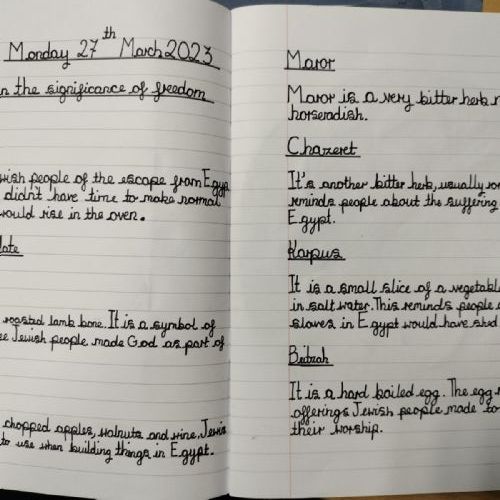 Monday 27th March 2023
n the significance of freedom
wish people of the escape from Egyp
didn't have time to make normal
would rise in the oven.
late
roasted lamb bone. It is a symbol of
ce Jewish people made God as part of
chopped apples, walnuts and wine. Jewis
to use when building things in Egypt.
Maror
Maror is a very bitter herb
horseradish.
Chazeret
It's another bitter herb, usually ro
reminds people about the suffering
Egypt.
Karpus
It is a small slice of a vegetable
in salt water. This reminds people
slaves in Egypt would have shed
Beitzah
It is a hard boiled egg. The egg
offerings Jewish people made to
their worship.